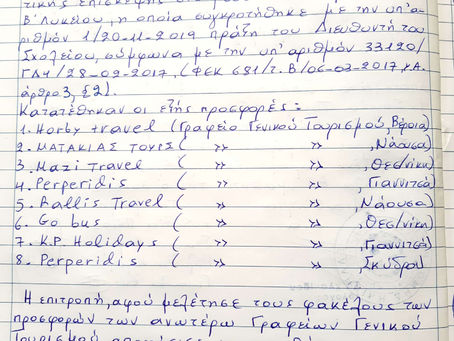 τικής επίσκεψης
Β΄ Λυκείου, η οποία συγκροτήθηκε με την υπ'α-
ριθμόν 1/20-11-2019 πράξη του Διευθυντή του
Σχολείου, σύμφωνα με την υπ' αριθμόν 33120/
ΓΔ4/28-02-2017, (ΦΕΚ 681/τ.Β/06-03-2017, κΑ.
άρθρο 3, §2).
Κατατέθηκαν οι εξής προσφορές:
1. Horby travel (Γραφείο Γενικού Τουρισμού, Βέροια)
2. ΜΑΤΑΚΙΑΣ ΤΟΥΡΣ ( » » , Νάουσα)
3. Mazi Travel ( » » , Θεσ/νίκη)
4. Perperidis ( » » , Γιαννιτσά)
5. Rallis Travel ( » » , Νάουσα)
6. Go bus ( » » , Θεσ/νίκη)
7. K.P. Holidays ( » » , Γιαννιτσά)
8. Perperidis ( » » , Σκύδρα)
Η επιτροπή, αφού μελέτησε τους φακέλους των
προσφορών των ανωτέρω Γραφείων Γενικού
Τουρισμού